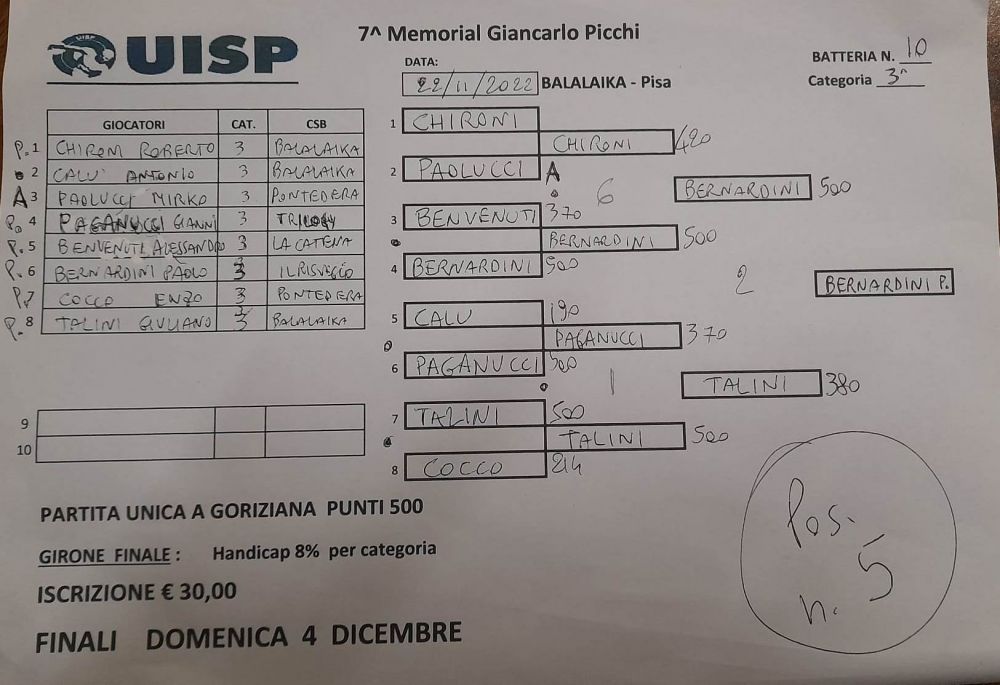 UISP
7^ Memorial Giancarlo Picchi
DATA:
22/11/2022 BALALAIKA - Pisa
BATTERIA N. 10
Categoria 3^
GIOCATORI CAT. CSB
P.1 CHIRONI ROBERTO 3 BALALAIKA
2 CALU' ANTONIO 3 BALALAIKA
A 3 PAOLUCCI MIRKO 3 PONTEDERA
P. 4 PAGANUCCI GIANNI 3 TRILOGY
P. 5 BENVENUTI ALESSANDRO 3 LA CATENA
P. 6 BERNARDINI PAOLO 3 IL RISVEGLIO
P.7 COCCO ENZO 3 PONTEDERA
P. 8 TALINI GIULIANO 3 BALALAIKA
9
10
1 CHIRONI
CHIRONI 420
2 PAOLUCCI A
6 BERNARDINI 500
3 BENVENUTI 370
BERNARDINI 500
4 BERNARDINI 500
2 BERNARDINI P.
5 CALU 190
PAGANUCCI 370
6 PAGANUCCI 500
1 TALINI 380
7 TALINI 500
TALINI 500
8 COCCO 214
PARTITA UNICA A GORIZIANA PUNTI 500
GIRONE FINALE : Handicap 8% per categoria
ISCRIZIONE € 30,00
FINALI DOMENICA 4 DICEMBRE
Pos.
n. 5